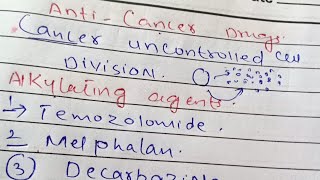 Anti-Cancer Drugs.
Cancer uncontrolled cell
Division.
Alkylating agents.
1→ Temozolomide.
2 Melphalan.
③ Decarbazine